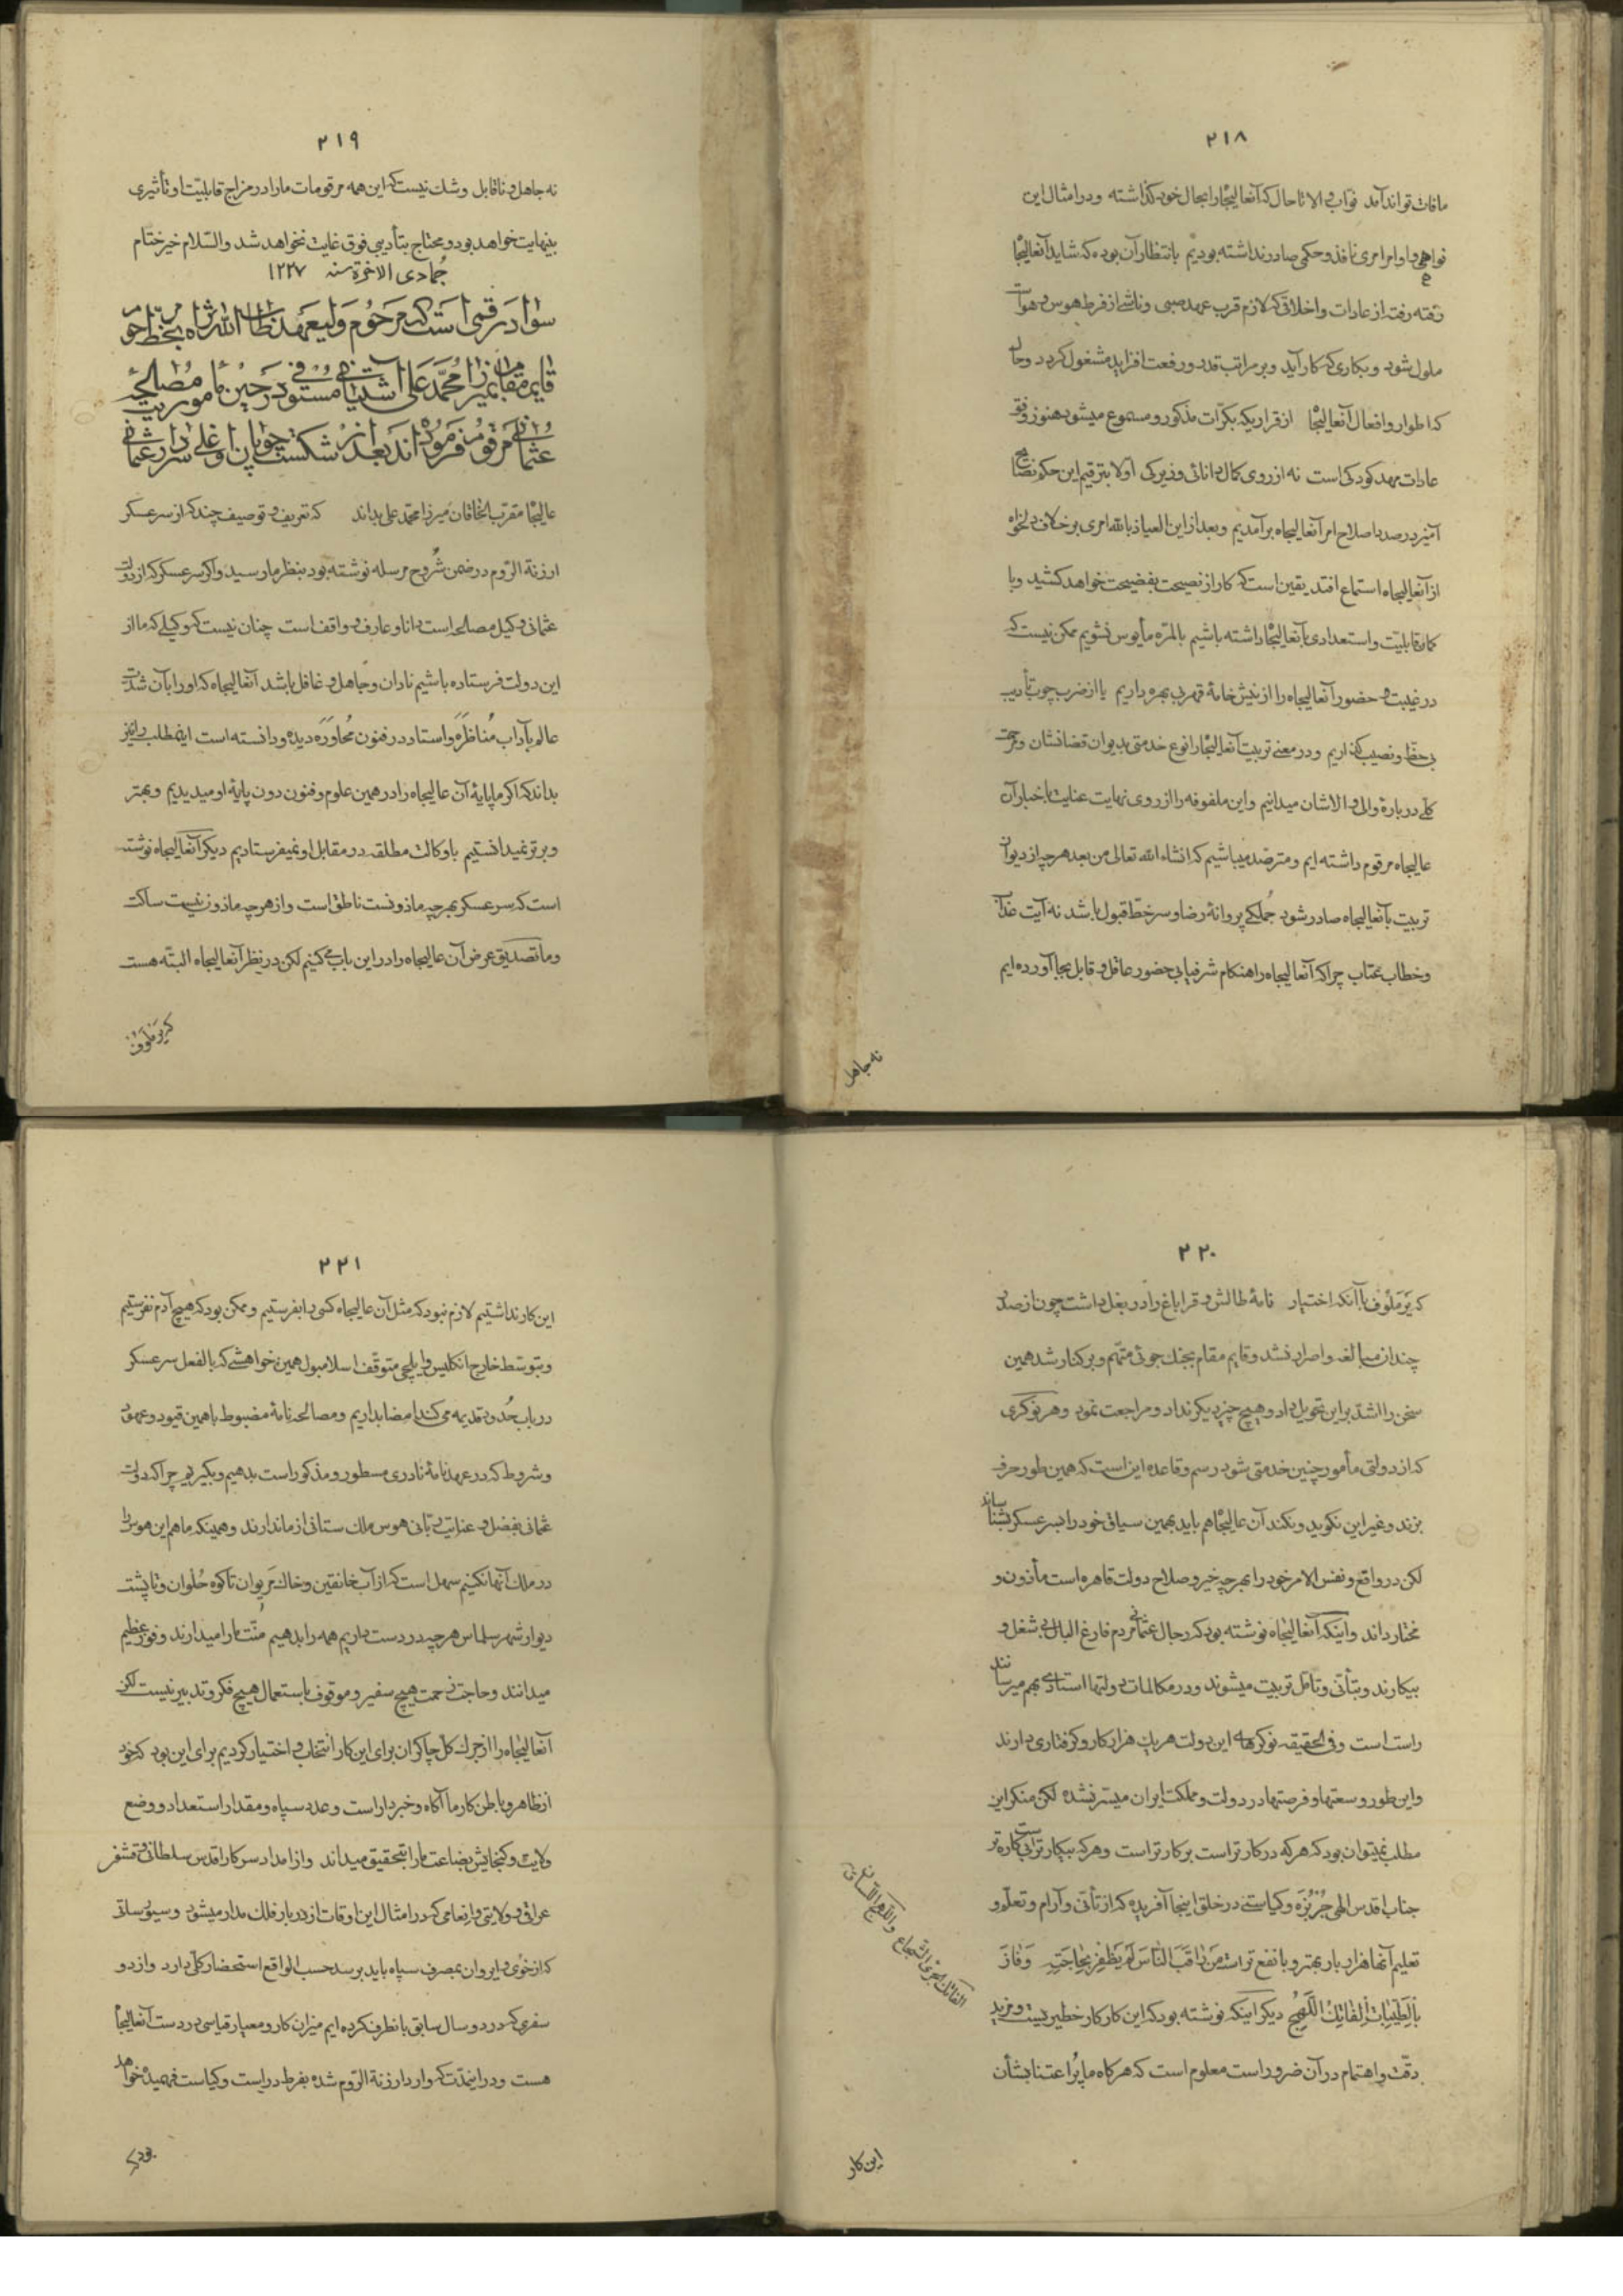 ۲۱۸
مافات تواند آمد نواب والا تا حال که آنعالیجاه را بحال خود گذاشته و در امثال این
نواهی و اوامر امری نافذ و حکمی صادر نداشته بودیم بانتظار آن بوده که شاید آنعالیجاه
رفته رفته از عادات و اخلاقی که لازم قرب عهد صبی و ناشی از فرط هوس و هوات
ملول شود و بکاری که کار آید و بر مراتب قدر و رفعت افزاید مشغول گردد و حال
که اطوار و افعال آنعالیجاه از قراریکه بکرّات مذکور و مسموع میشود هنوز وفق
عادات مهد کودکی است نه از روی کمال دانائی و زیرکی اولا بترقیم این حکم نصایح
آمیز در صدد اصلاح امر آنعالیجاه برآمدیم و بعد از این العیاذ بالله امری بر خلاف دلخواه
از آنعالیجاه استماع افتد یقین است که کار از نصیحت بفضیحت خواهد کشید و با
گمان قابلیّت و استعدادی بآنعالیجاه داشته باشیم بالمرّه مأیوس نشویم ممکن نیست که
در غیبت و حضور آنعالیجاه را از نیش خامهٔ قهر بی بهره داریم یا از ضرب چوب تأدیب
بی حظّ و نصیب گذاریم و در معنی تربیت آنعالیجاه را نوع خدمتی بدیوان قضا نشان و مرحمت
کلّی در بارهٔ والی والاشان میدانیم و این ملفوفه را از روی نهایت عنایت باخبار آن
عالیجاه مرقوم داشته ایم و مترصّد میباشیم که انشاء الله تعالی من بعد هرچه از دیوان
تربیت بآنعالیجاه صادر شود جملگی پروانهٔ رضا و سر خطّ قبول باشد نه آیت عذاب
و خطاب عتاب چرا که آنعالیجاه را هنگام شرفیابی حضور عاقل و قابل بجا آورده ایم
نه جاهل
۲۱۹
نه جاهل و ناقابل و شک نیست که این همه مرقومات ما را در مزاج قابلیّت او تأثیری
بینهایت خواهد بود و محتاج بتأدیبی فوق غایت نخواهد شد والسّلام خیر ختام
جمادی الاخرة سنه ۱۲۲۷
سواد رقمی است که مرحوم ولیعهد طاب الله ثراه بخط مرحوم
قایم مقام بمیرزا محمد علی آشتیانی مستوفی در حین مأموریت مصالحه
عثمانی مرقوم فرموده اند بعد از شکست چوپان اوغلی سردار عثمانی
عالیجاه مقرّب الخاقان میرزا محمد علی بداند که تعریف و توصیف چند که از سرعسکر
ارزنة الرّوم در ضمن شروح مرسله نوشته بود بنظر ما رسید و اگر سرعسکر که از دولت
عثمانی وکیل مصالحه است دانا و عارف و واقف است چنان نیست که وکیلی که ما از
این دولت فرستاده باشیم نادان و جاهل و غافل باشد آنعالیجاه که او را بآن شدّت
عالم بآداب مُناظَرَه و استاد در فنون مُحاوَرَه دیده و دانسته است اینمطلب را نیز
بداند که اگر ما پایهٔ آن عالیجاه را در همین علوم و فنون دون پایهٔ او میدیدیم و بهتر
و برتر نمیدانستیم باوکالت مطلقه در مقابل او نمیفرستادیم دیگر آنعالیجاه نوشته
است که سرعسکر بهرچه ماذونست ناطق است و از هرچه ماذون نیست ساکت
و ما تصدیق عرض آن عالیجاه را در این باب می کنیم لکن در نظر آنعالیجاه البتّه هست
که یرملوف
۲۲۰
که یَرمَلُوف با آنکه اختیار نامهٔ طالش و قراباغ را در بغل داشت چون از صدر
چندان مبالغه و اصرار نشد و قایم مقام بجنک جوئی متّهم و برکنار شد همین
سخن را اشدّ براین تحویل داد و هیچ چیز دیگر نداد و مراجعت نمود و هر نوکری
که از دولتی مأمور چنین خدمتی شود رسم و قاعده این است که همین طور حرف
بزند و غیر این نگوید و نکند آن عالیجاه هم باید بهمین سیاق خود را بسرعسکر بشناساند
لکن در واقع و نفس الامر خود را بهرچه خیر و صلاح دولت قاهره است مأذون و
مختار داند و اینکه آنعالیجاه نوشته بود که رجال عثمانی مردم فارغ البال بی شغل و
بیکارند و بتأنّی و تامّل تربیت میشوند و در مکالمات دولتها استادی بهم میرسانند
راست است و فی الحقیقه نوکرهای این دولت هر یک هزار کار و گرفتاری دارند
و این طور وسعتها و فرصتها در دولت و مملکت ایران میسّر نشده لکن منکر این
مطلب نمیتوان بود که هر که در کار تر است بر کار تر است و هر که بیکار تر است بی کاره تر
جناب اقدس الهی جُربُزَه و کیاستی در خلق اینجا آفریده که از تأنّی و آرام و تعلّم و
تعلیم آنها هزار بار بهتر و با نفع تر است مَن راقَبَ النّاسَ لَم یَظفَر بِحاجَتِهِ وَ فازَ
بِالطَّیِّباتِ الفاتِكُ اللَّهِجُ دیگر اینکه نوشته بود که این کار کار خطیریست و مزید
دقّت و اهتمام در آن ضرور است معلوم است که هرگاه ما را اعتنا بشأن
الفاتك الجری الشجاع واللهج
این کار
۲۲۱
این کار نداشتیم لازم نبود که مثل آن عالیجاه کسی را بفرستیم و ممکن بود که هیچ آدم نفرستیم
و بتوسّط خارج انگلیس و ایلچی متوقّف اسلامبول همین خواهشی که بالفعل سرعسکر
در باب حُدود قدیمه می کند امضا بداریم و مصالحه نامهٔ مضبوط با همین قیود و عهود
و شروط که در عهدنامهٔ نادری مسطور و مذکور است بدهیم و بگیریم چرا که دولت
عثمانی بفضل و عنایت ربّانی هوس ملک ستانی از ما ندارند و همینکه ما هم این هوس را
در ملک آنها نکنیم سهل است که از آب خانقین و خاک مریوان تا کوه حُلوان و تا پشت
دیوار شهر سلماس هرچه در دست داریم همه را بدهیم منّت ما را میدارند و فوز عظیم
میدانند و حاجت زحمت هیچ سفیر و موقوف باستعمال هیچ فکر و تدبیر نیست لکن
آنعالیجاه را از جرگ کلّ چاکران برای این کار انتخاب و اختیار کردیم برای این بود که خود
از ظاهر و باطن کار ما آگاه و خبردار است و عدد سپاه و مقدار استعداد و وضع
ولایت و گنجایش بضاعت ما را بتحقیق میداند و از امداد سرکار اقدس سلطانی و قشقر
عراقی و ولایتی و انعامی که در امثال این اوقات از دربار فلک مدار میشود و سیورساتی
که از خُوی و ایروان بمصرف سپاه باید برسد حسب الواقع استحضار کلّی دارد و از دو
سفری که در دو سال سابق بانطرف کرده ایم میزان کار و معیار قیاسی در دست آنعالیجاه
هست و در اینمدّت که وارد ارزنة الرّوم شده بفرط درایت و کیاست فهمیده خواهد
بود که